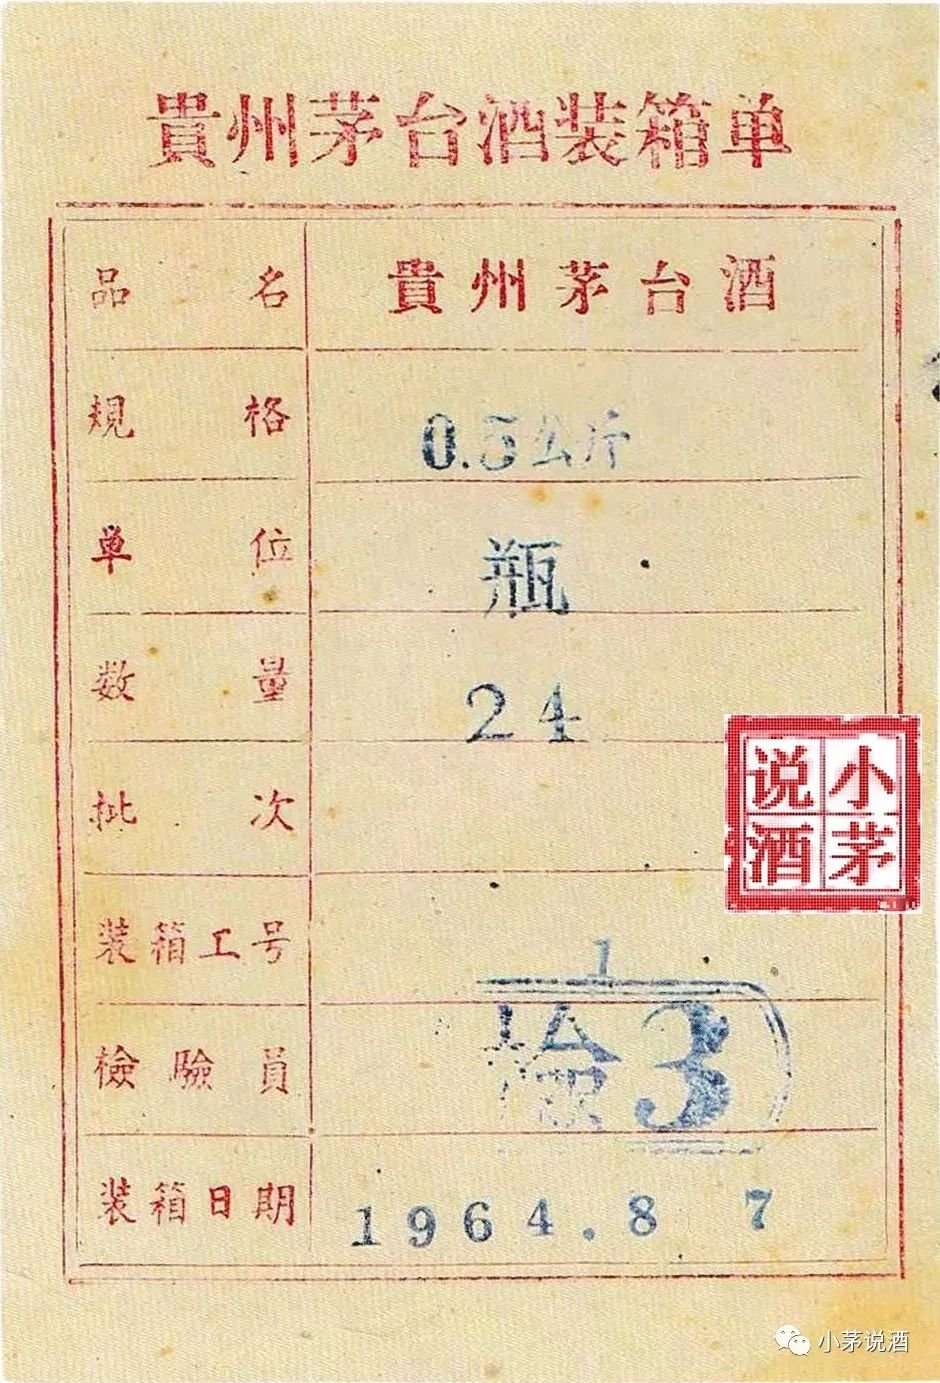 貴州茅台酒装箱单
品名 貴州茅台酒
規格 0.5公斤
单位 瓶
数量 24
批次
装箱工号 1
檢驗員 檢3
装箱日期 1964.8 7
小茅
说酒
小茅说酒